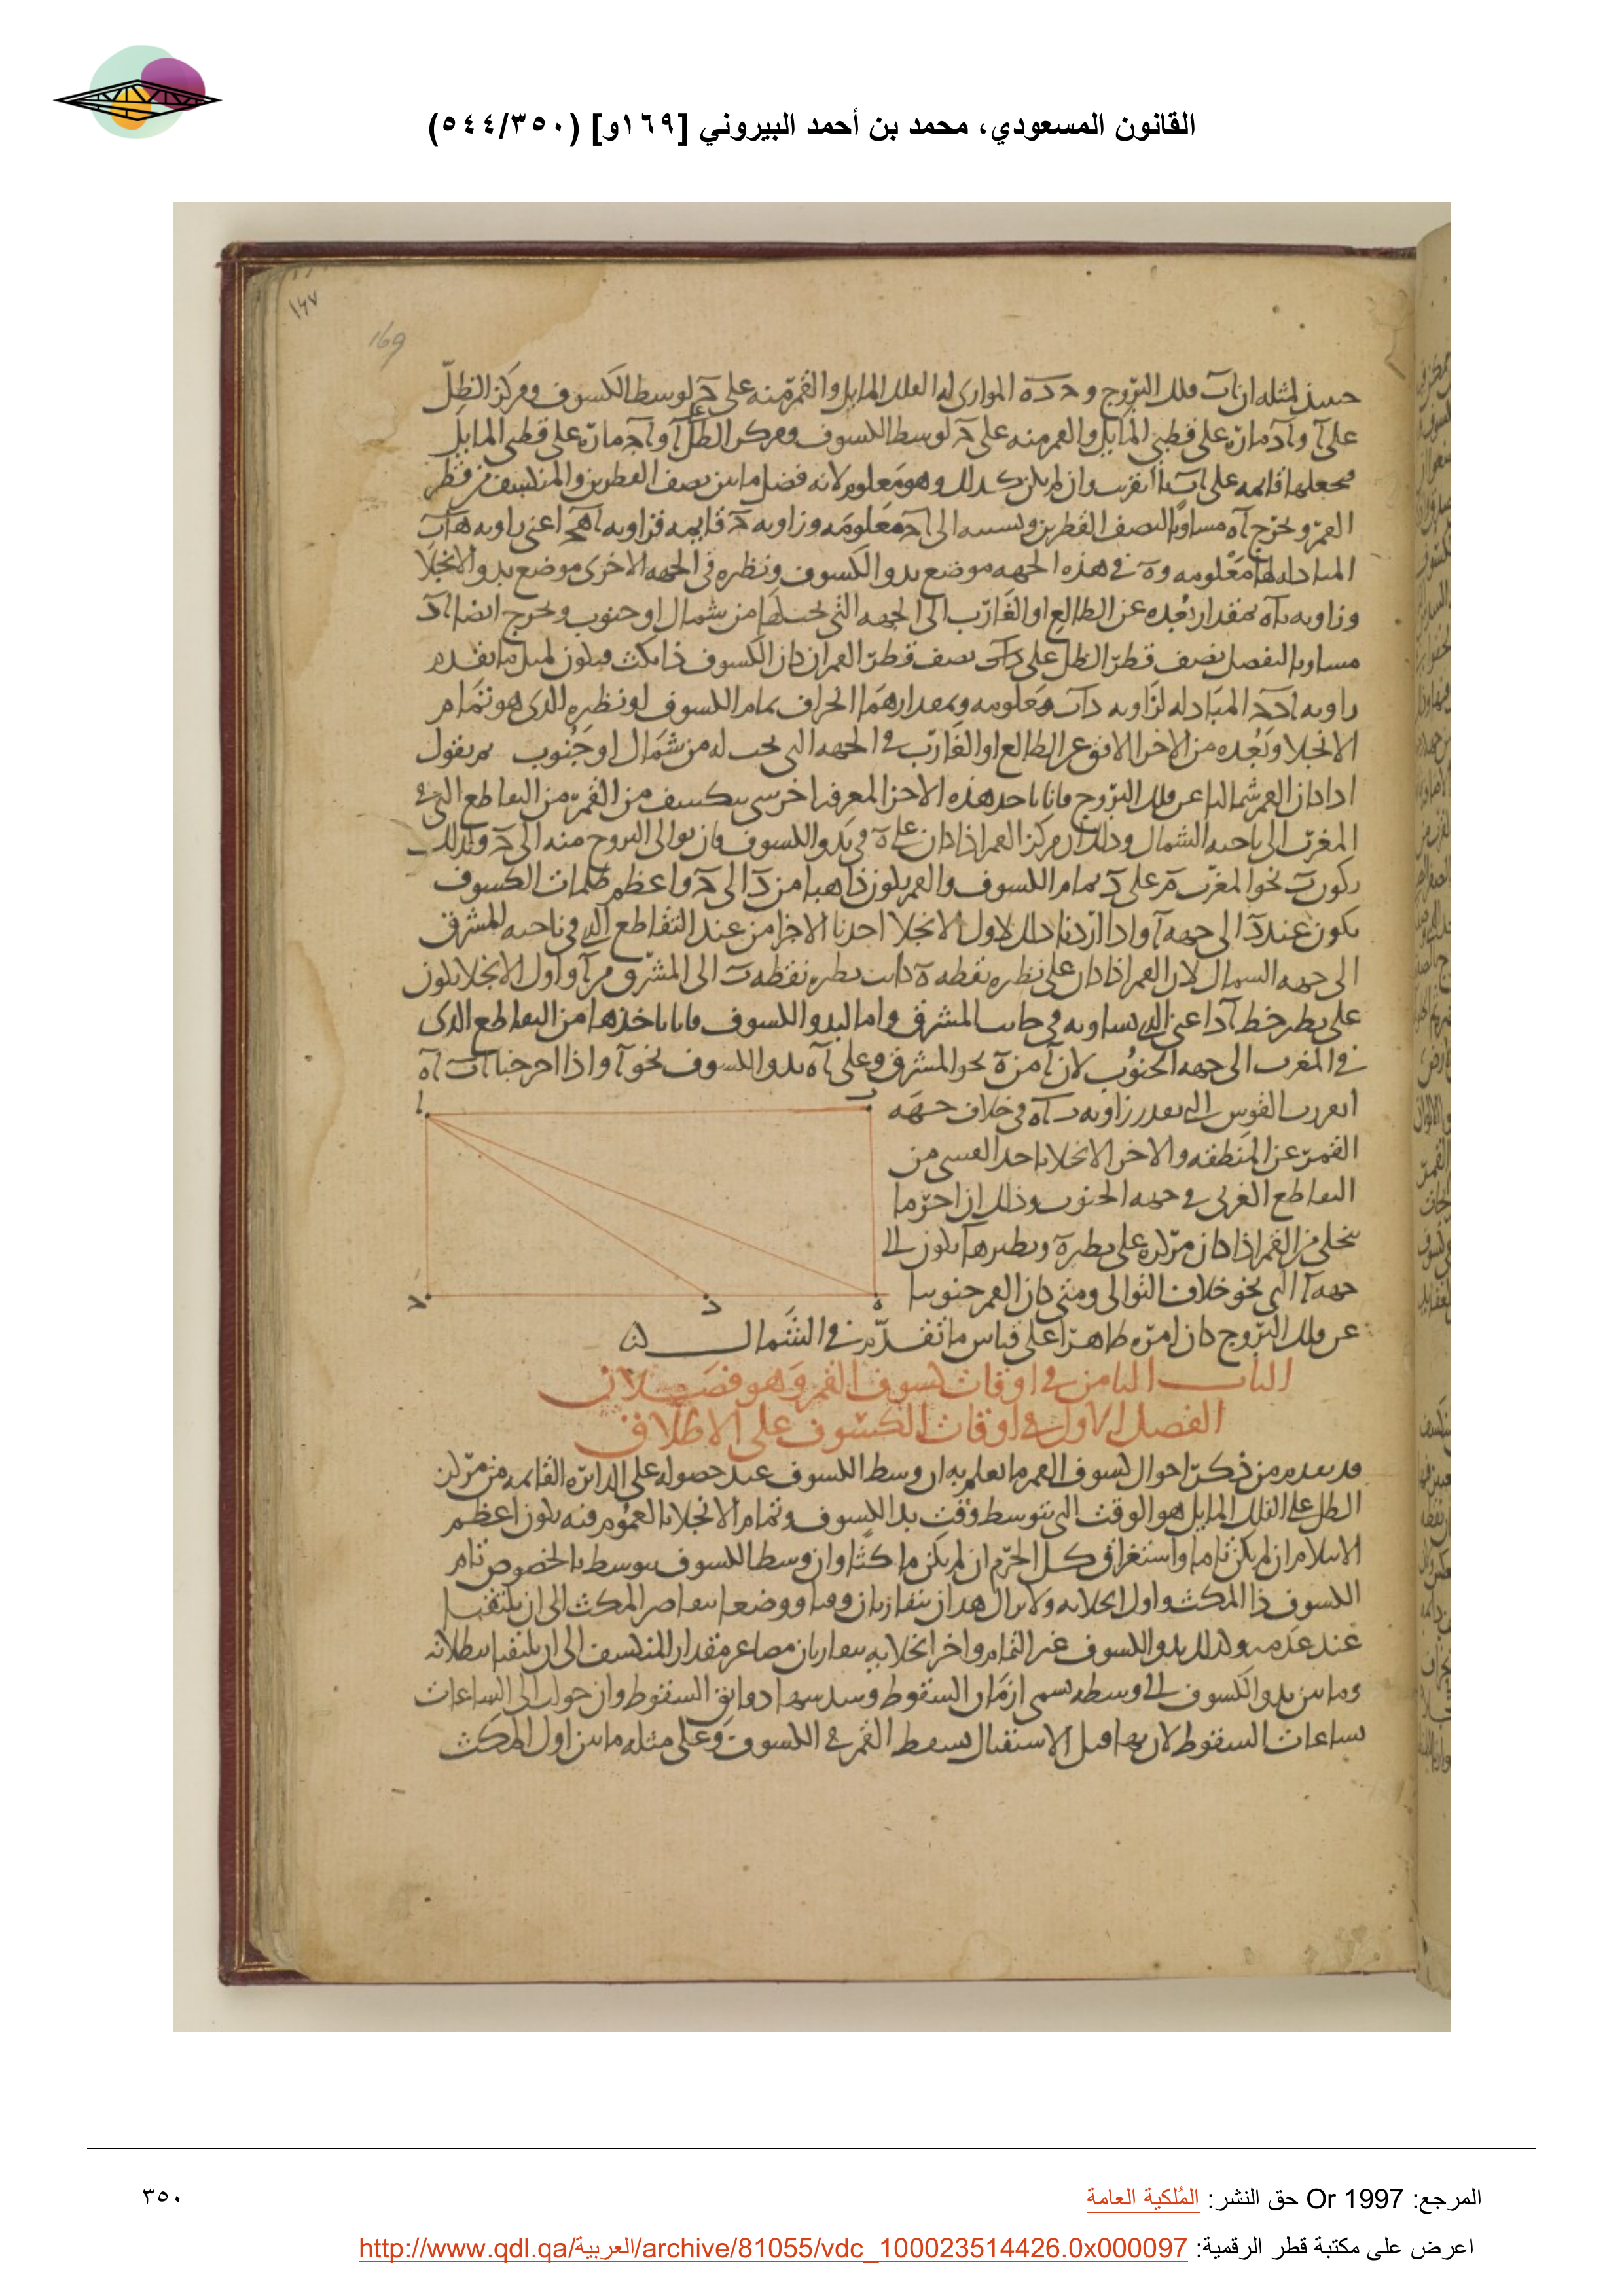 القانون المسعودي، محمد بن أحمد البيروني [١٦٩و] (٥٤٤/٣٥٠)
١٦٧
169
لمثله ان اب فلك البروج و حده الموازى له الفلك المايل والقمر منه على ح لوسط الكسوف ومركز الظل
على آ و آد مارة على قطبى المايل والقمر منه على ح لوسط الكسوف ومركز الظل آ و آح مارة على قطبى المايل
وان لم يكن كذلك وهو معلوم لانه فضل ما بين نصف القطرين والمنكسف من قطر
القمر ونخرج آه مساويا لنصف القطرين ونسبته الى آح معلومه وزاويه ح قايمه فزاويه اهح اعنى زاويه هاب
المبادله لها معلومه و ه فى هذه الجهه موضع بدو الكسوف ونظيره فى الجهه الاخرى موضع بدو الانجلا
وزاويه باه بمقدار بعده عن الطالع او الغارب الى الجهه التى من شمال او جنوب ونخرج ايضا اد
مساويا لفضل نصف قطر الظل على نصف قطر القمر ان كان الكسوف ذا مكث فيكون لمثل ما تقدم
زاويه ادح المبادله لزاويه داب معلومه وبمقدارهما انحراف تمام الكسوف او نظيره الذى هو تمام
الانجلا وبعده من الافق عن الطالع او الغارب فى الجهه التى يجب له من شمال او جنوب ثم نقول
اذا كان القمر شماليا عن فلك البروج فانا ناخذ هذه الاجزا لمعرفه اخر شى ينكسف من القمر من التقاطع التى فى
المغرب الى ناحيه الشمال وذلك ان مركز القمر اذا كان على ه فى بدو الكسوف فان توالى البروج منه الى ح وكذلك
يكون ب نحو المغرب على د تمام الكسوف والقمر يكون ذاهبا من د الى ح واعظم ظلمات الكسوف
يكون عند د الى جهه آ واذا اردنا ذلك لاول الانجلا اخذنا الاجزا من عند التقاطع الذى فى ناحيه المشرق
الى جهه الشمال لان القمر اذا كان على نظيره نقطه ه كانت نظيره نقطه ب الى المشرق من آ واول الانجلا يكون
على نظير خط آد اعنى الذى يساويه فى جانب المشرق واما لبدو الكسوف فانا ناخذها من التقاطع الذى
فى المغرب الى جهه الجنوب لان آ من ه نحو المشرق وعلى آه بدو الكسوف نحو آ واذا اخرجنا آه
القوس التى بقدر زاويه باه فى خلاف جهه
القمر عن المنطقه والاخر الانجلا ناخذ القسى من
التقاطع الغربى فى جهه الجنوب وذلك ان اخر ما
ينجلى من القمر اذا كان مركزه على نظيره ه ونظيرها يكون الى
جهه آ التى نحو خلاف التوالى ومتى كان القمر جنوبيا
عن فلك البروج كان امره ظاهرا على قياس ما تقدم فى الشمال
ا
ب
ح
د
ه
الباب الثامن فى اوقات كسوف القمر وهو فصلان
الفصل الاول فى اوقات الكسوف على الاطلاق
قد تقدم من ذكر احوال كسوف القمر ما نعلم به ان وسط الكسوف عند حصوله على الدايره القايمه من مركز
الظل على الفلك المايل هو الوقت الذى يتوسط وقت بدا الكسوف وتمام الانجلا بالعموم فيه يكون اعظم
ان لم يكن تاما واستغراق كل الجرم ان لم يكن ماكثا وان وسط الكسوف يتوسط بالخصوص تمام
الكسوف ذا المكث واول انجلايه ولا يزال هذان يتقاربان وقتا ووضعا المكث الى ان يلتقيا
عند عدمه وكذلك بدو الكسوف غير التمام واخر انجلايه يتقاربان مقدار المنكسف الى ان يلتقيا
وما بين بدو الكسوف الى وسطه يسمى ازمان السقوط وسدسها دقايق السقوط وان حول الى الساعات
ساعات السقوط لان بها قبل الاستقبال يسقط القمر فى الكسوف وعلى مثله ما بين اول المكث
المرجع: Or 1997 حق النشر: المُلكية العامة
٣٥٠
اعرض على مكتبة قطر الرقمية: http://www.qdl.qa/العربية/archive/81055/vdc_100023514426.0x000097